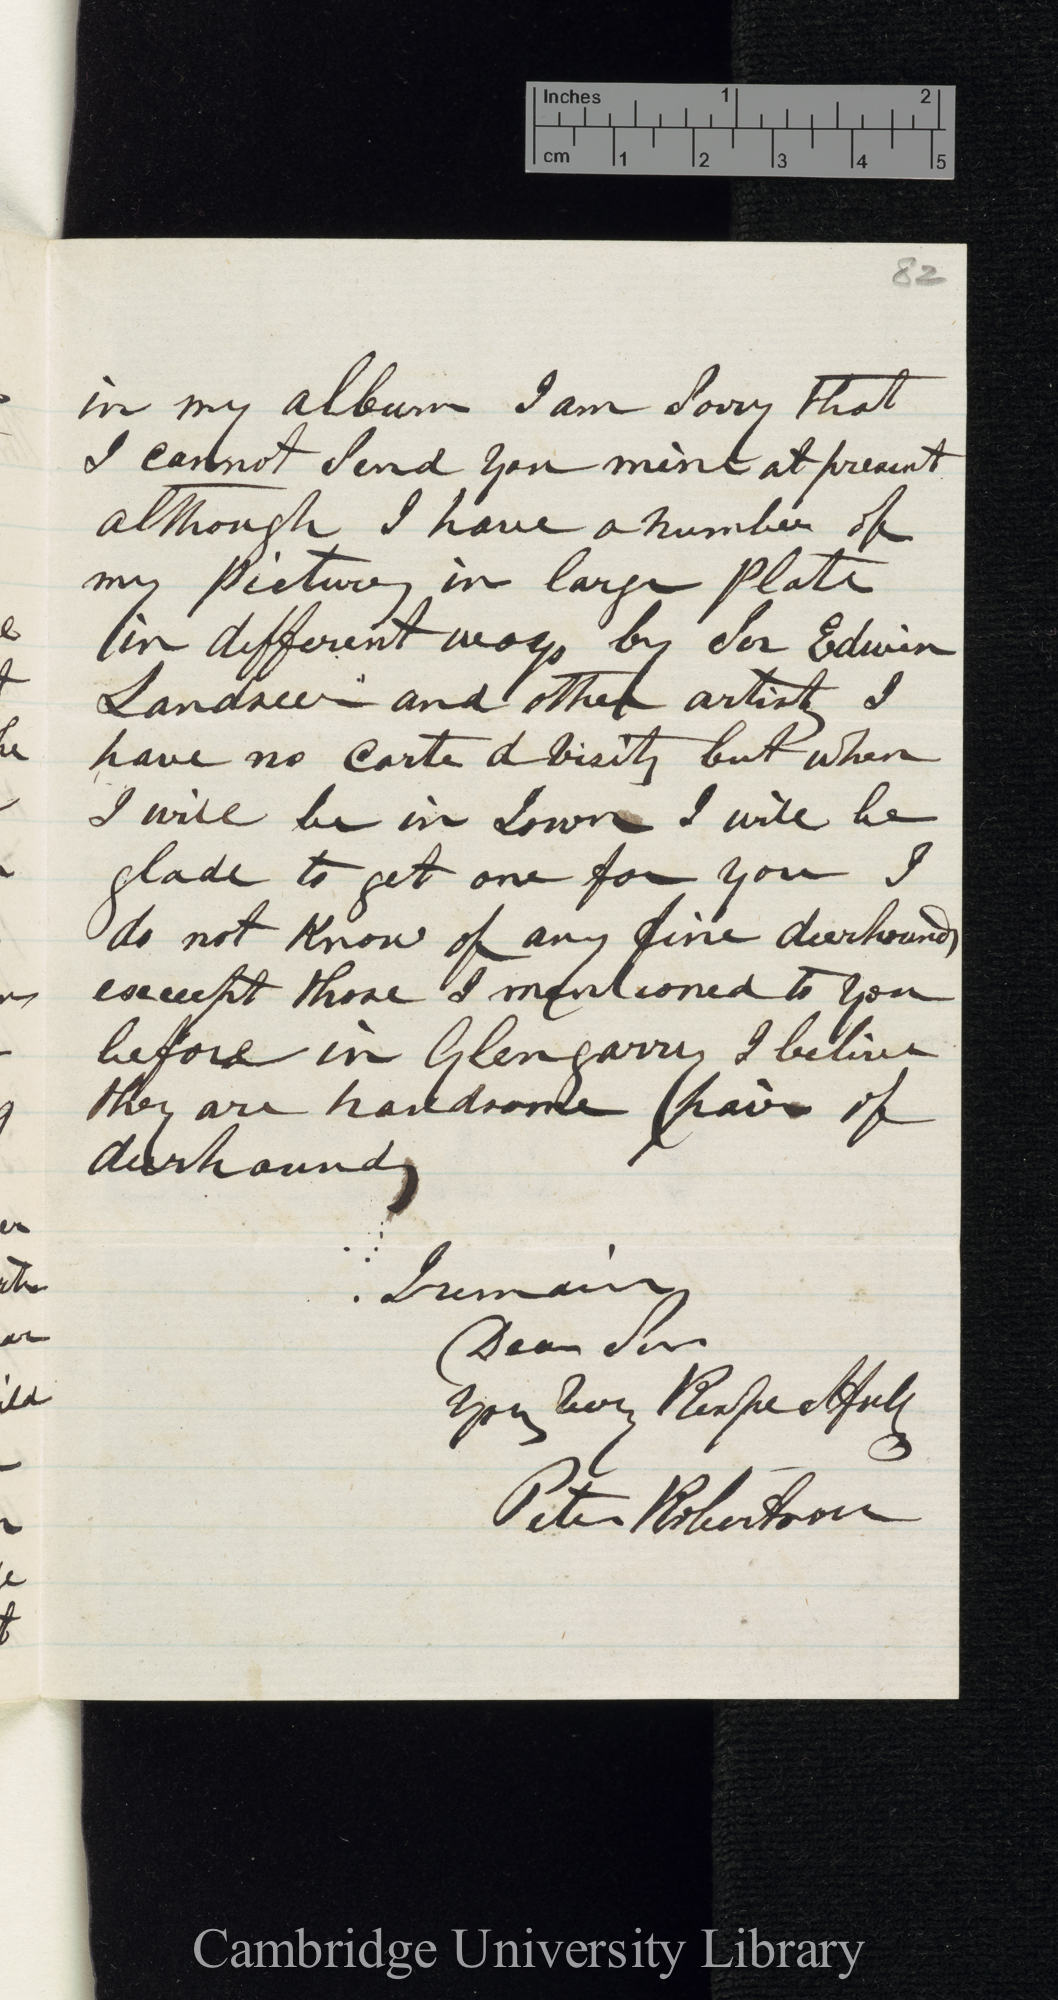 Inches 1 2
cm 1 2 3 4 5
82
in my album I am Sorry that
I cannot Send you mine at present
although I have a number of
my Pictures in large Plate
in different ways by Sir Edwin
Landseer and other artists I
have no carte d Visits but when
I will be in Town I will be
glade to get one for you I
do not Know of any fine deerhounds
except those I mentioned to you
before in Glengarry I belive
they are handsome pair of
deerhounds
I remain
Dear Sir
Yours Very Respectfully
Peter Robertson
Cambridge University Library